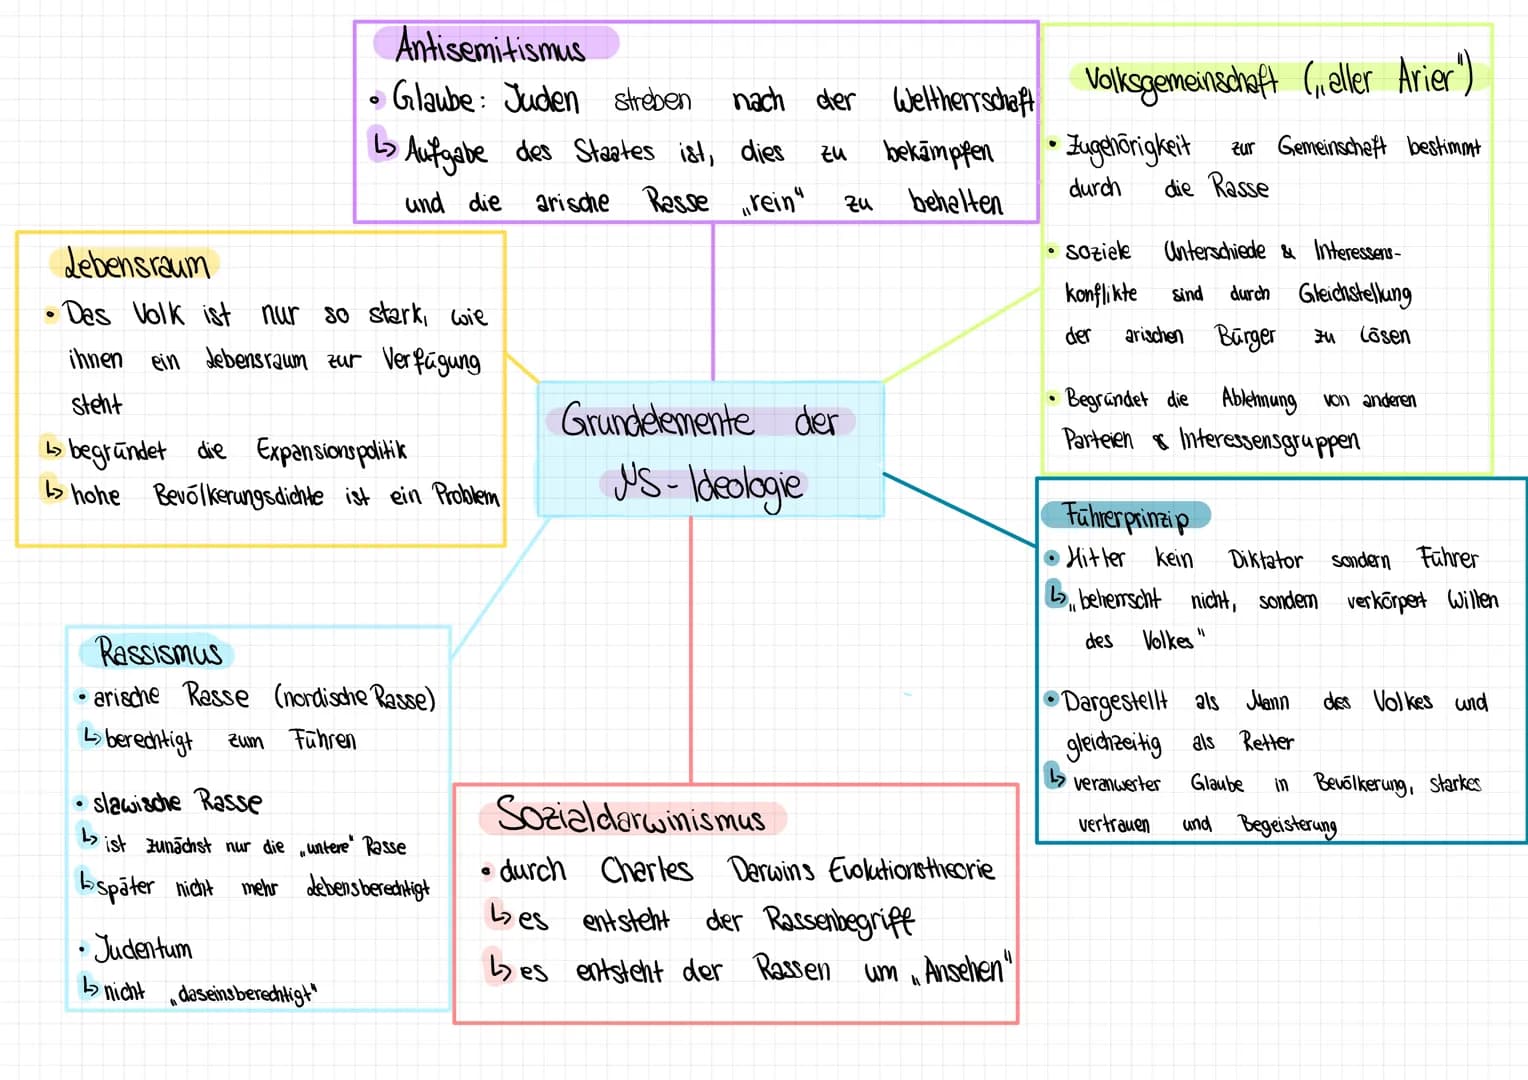 Antisemitismus
• Glaube: Juden streben nach der Weltherrschaft
↳ Aufgabe des Staates ist, dies zu bekämpfen
und die arische Rasse „rein“ zu behalten
Volksgemeinschaft („aller Arier“)
• Zugehörigkeit zur Gemeinschaft bestimmt
durch die Rasse
• soziale Unterschiede & Interessens-
konflikte sind durch Gleichstellung
der arischen Bürger zu lösen
• Begründet die Ablehnung von anderen
Parteien & Interessensgruppen
Lebensraum
• Das Volk ist nur so stark, wie
ihnen ein Lebensraum zur Verfügung
steht
↳ begründet die Expansionspolitik
↳ hohe Bevölkerungsdichte ist ein Problem
Grundelemente der
NS-Ideologie
Führerprinzip
• Hitler kein Diktator sondern Führer
↳ „beherrscht nicht, sondern verkörpert Willen
des Volkes“
• Dargestellt als Mann des Volkes und
gleichzeitig als Retter
↳ veranwerter Glaube in Bevölkerung, starkes
vertrauen und Begeisterung
Rassismus
• arische Rasse (nordische Rasse)
↳ berechtigt zum Führen
• slawische Rasse
↳ ist zunächst nur die „untere“ Rasse
↳ später nicht mehr lebensberechtigt
• Judentum
↳ nicht „daseinsberechtigt“
Sozialdarwinismus
• durch Charles Darwins Evolutionstheorie
↳ es entsteht der Rassenbegriff
↳ es entsteht der Rassen um „Ansehen“